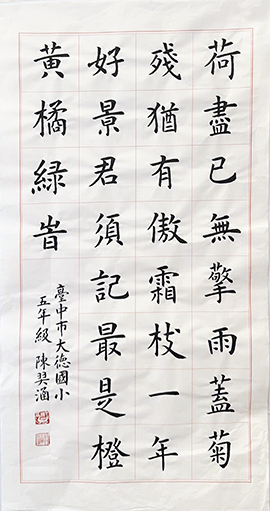 荷盡已無擎雨蓋菊
殘猶有傲霜枝一年
好景君須記最是橙
黃橘綠旹
臺中市大德國小
五年級 陳巽涵